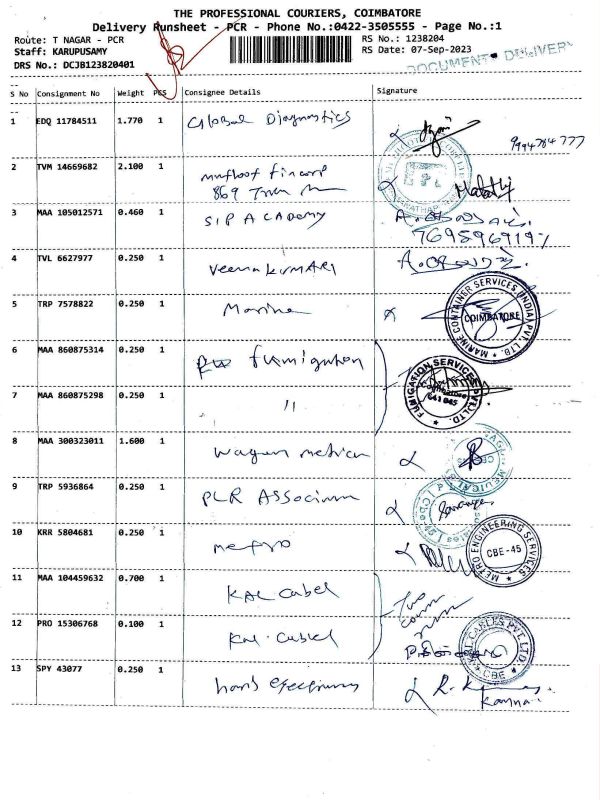 THE PROFESSIONAL COURIERS, COIMBATORE
Delivery Runsheet - PCR - Phone No.:0422-3505555 - Page No.:1
Route: T NAGAR - PCR
RS No.: 1238204
Staff: KARUPUSAMY
RS Date: 07-Sep-2023
DRS No.: DCJB123820401
DOCUMENTS DELIVERY
S No Consignment No Weight PCS Consignee Details Signature
1 EDQ 11784511 1.770 1 Global Diagnostics
2 TVM 14669682 2.100 1 muthoot fincorp
869
Malathi
3 MAA 105012571 0.460 1 SIP ACADEMY
4 TVL 6627977 0.250 1 Veena kumari
5 TRP 7578822 0.250 1 Marine
MARINE CONTAINER SERVICES (INDIA) PVT. LTD.
COIMBATORE
6 MAA 860875314 0.250 1 fumigation
FUMIGATION SERVICES PVT. LTD.
Coimbatore
641 045
7 MAA 860875298 0.250 1 "
8 MAA 300323011 1.600 1
9 TRP 5936864 0.250 1 PLR
Cbe-45
10 KRR 5804681 0.250 1 metro
METRO ENGINEERING SERVICES
CBE-45
11 MAA 104459632 0.700 1 KAL Cabel
12 PRO 15306768 0.100 1 Kal. Cabel
KAL CABLES PVT. LTD.
CBE
13 SPY 43077 0.250 1